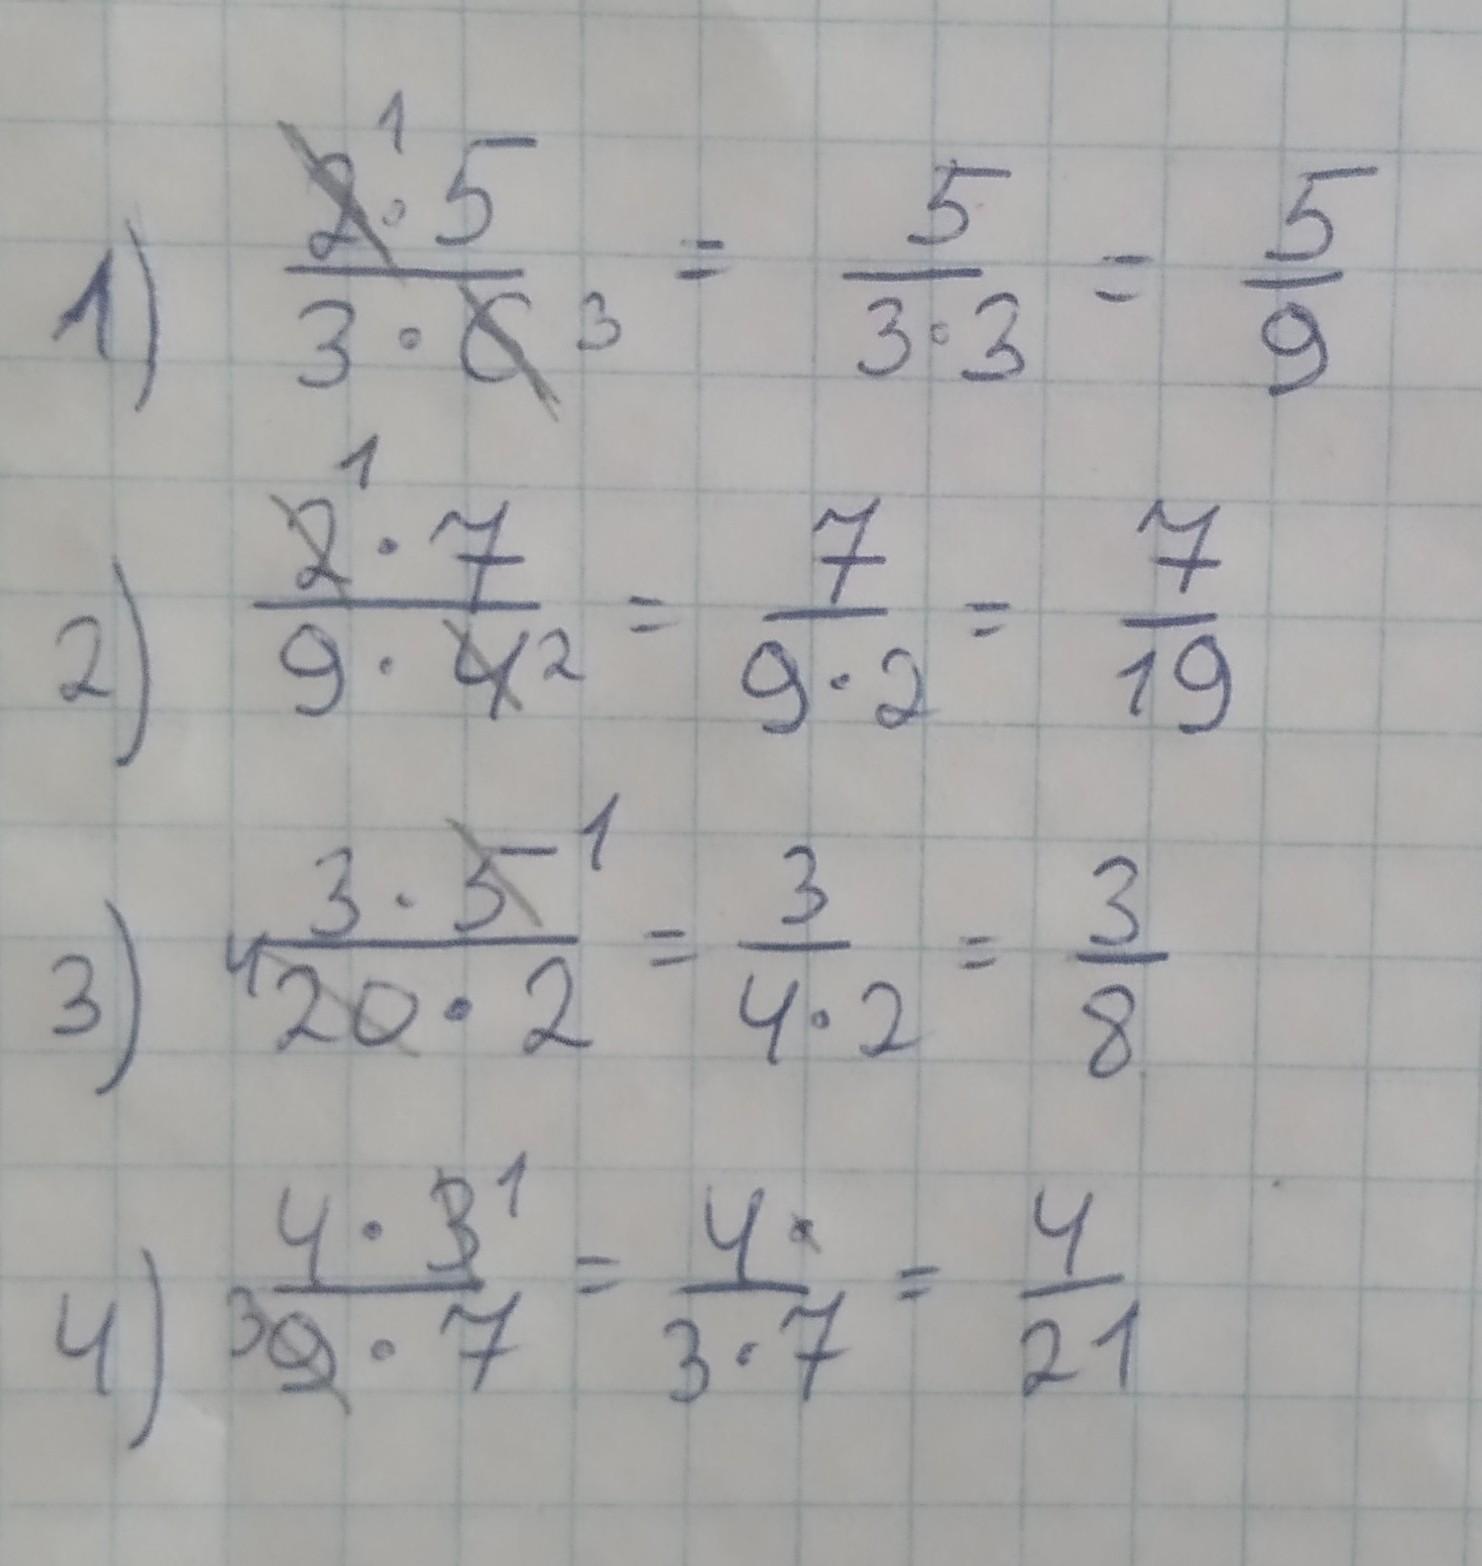 1) 2̸¹ · 5 / 3 · 6̸ 3 = 5 / 3 · 3 = 5 / 9
2) 2̸¹ · 7 / 9 · 4̸ 2 = 7 / 9 · 2 = 7 / 19
3) 3 · 5̸ 1 / 4 2̸0̸ · 2 = 3 / 4 · 2 = 3 / 8
4) 4 · 3̸ 1 / 3 9̸ · 7 = 4 · / 3 · 7 = 4 / 21